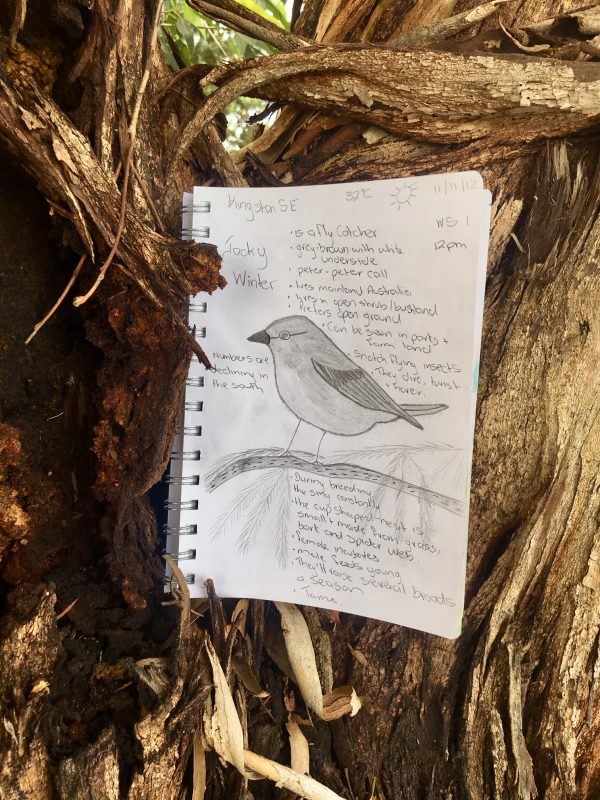 Kingston SE 32°C 11/11/12
WS 1
12pm
Jacky
Winter
• is a fly Catcher
• grey-brown with white
underside
• peter-peter call
• lives mainland Australia
• lives in open shrub/bushland
• Prefers open ground
• Can be seen in parks +
farm land
• Snatch flying insects
• They dive, twist
+ hover.
Numbers are
declining in
the south
• During breeding
the sing constantly
• the cup shaped nest is
small + made from grass,
bark and spider web.
• female incubates
• male feeds young
• They'll raise several broods
a season
• Tame.